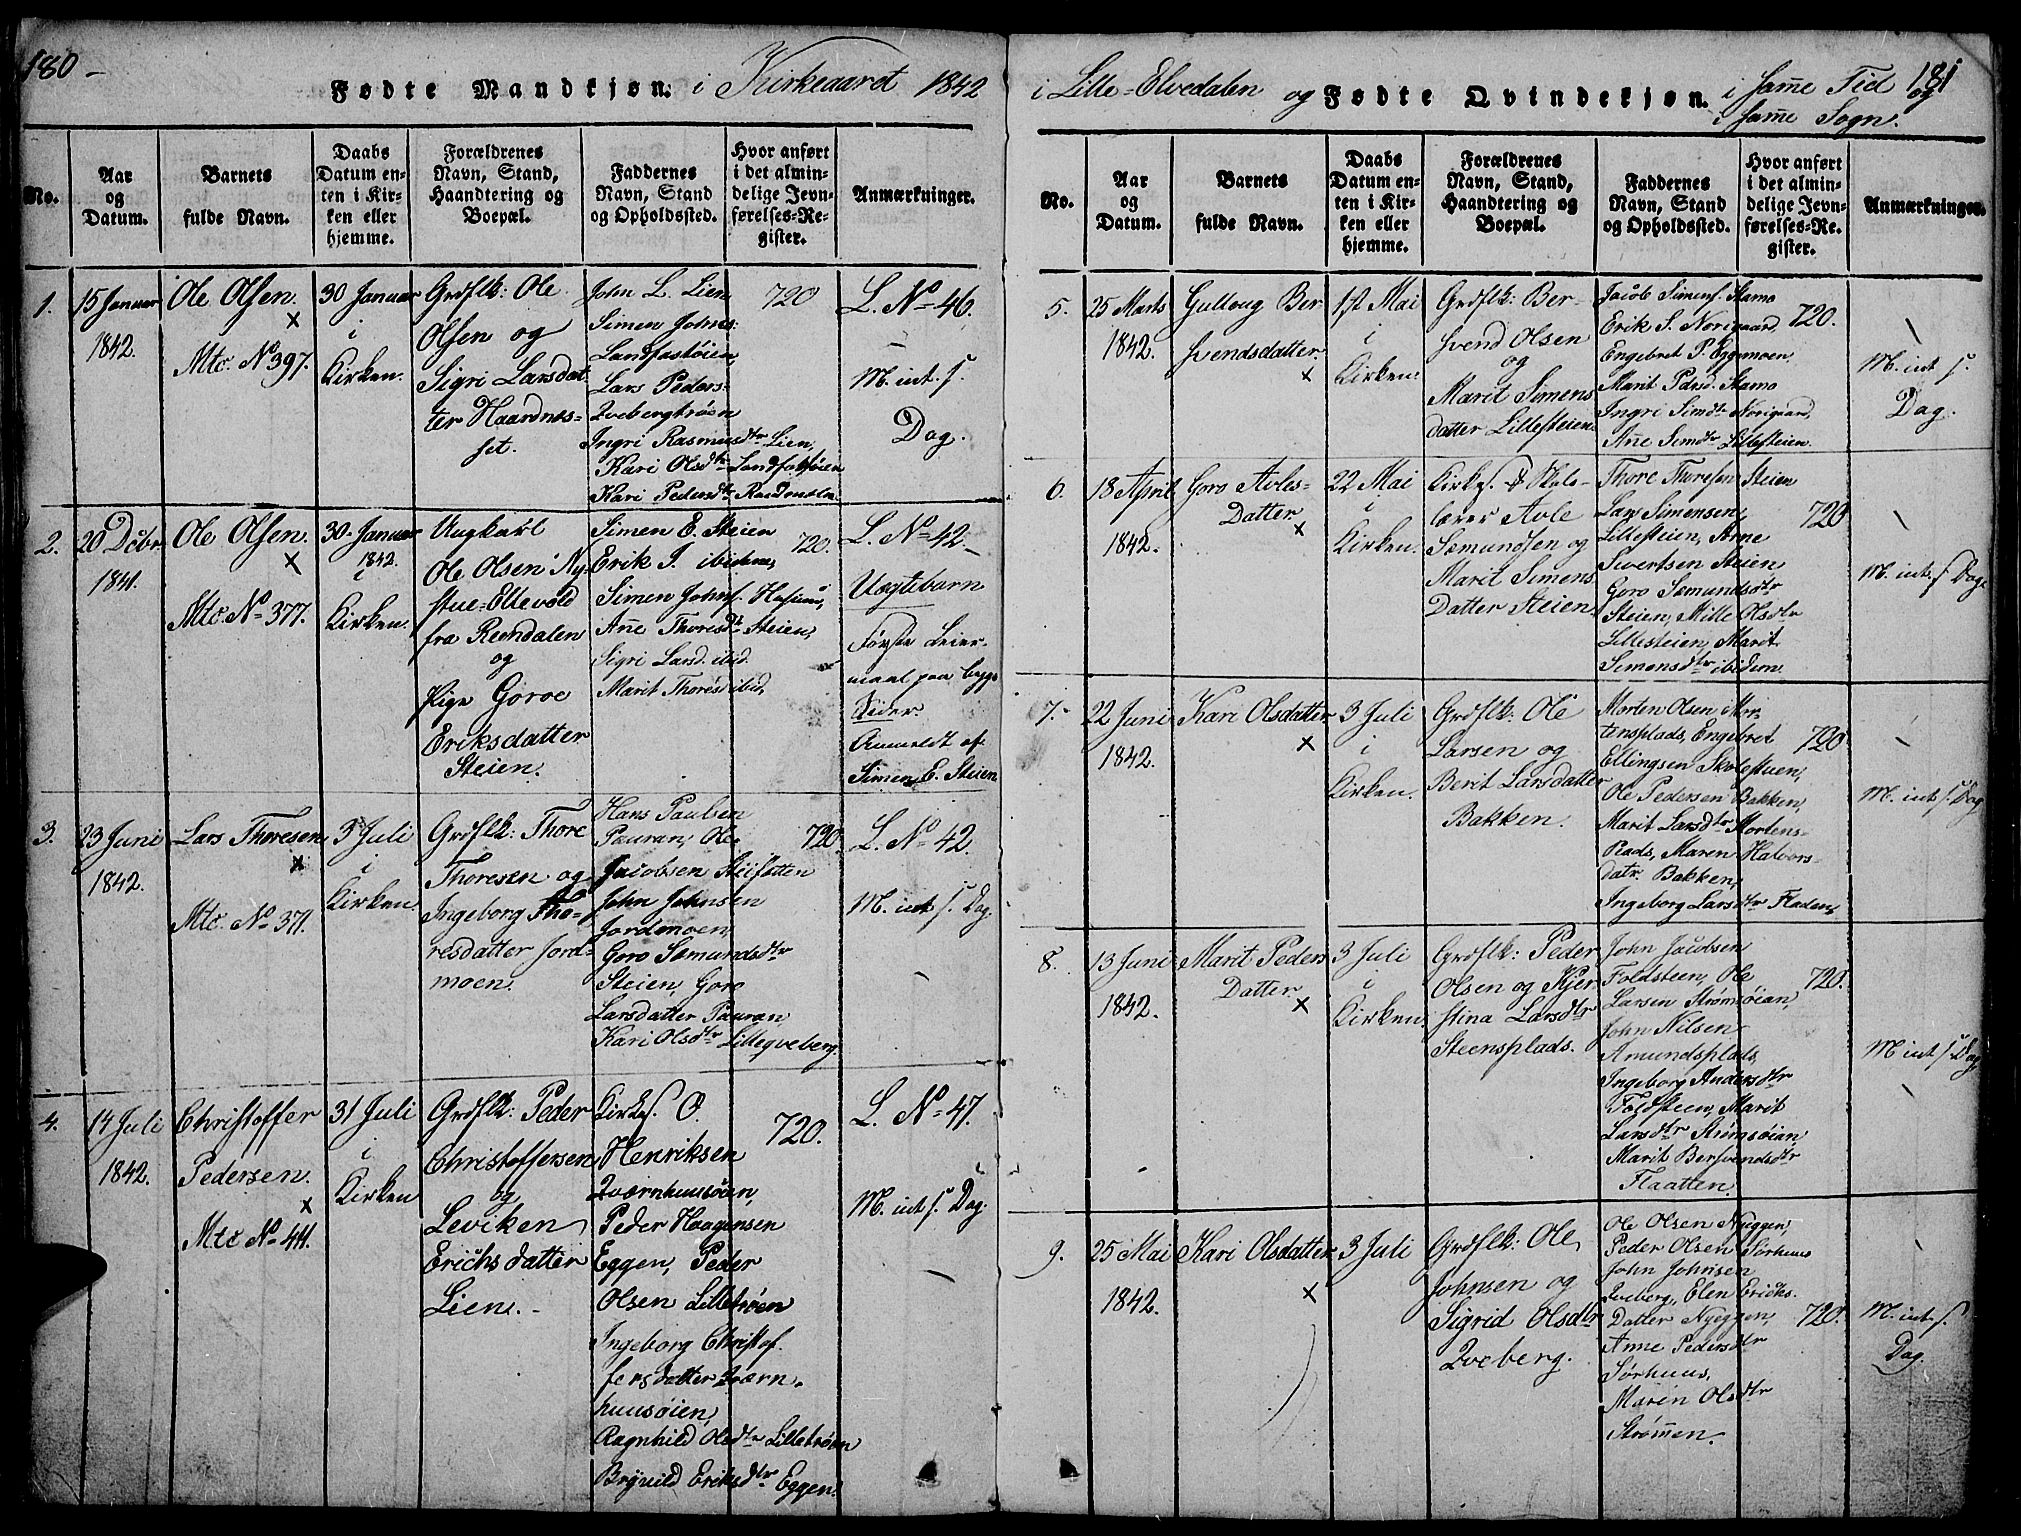 180 -
Fødte Mandkjøn. i Kirkeaaret 1842
No.
Aar
og
Datum.
Barnets
fulde Navn.
Daabs
Datum en-
ten i Kir-
ken eller
hjemme.
Forældrenes
Navn, Stand,
Haandtering og
Boepæl.
Faddernes
Navn, Stand
og Opholdssted.
Hvor anført
i det almin-
delige Jevn-
førelses-Re-
gister.
Anmærkninger.
1.
15 Januar
1842.
Ole Olsen.
×
Mtc. No 397.
30 Januar
i
Kirken.
Grdflk: Ole
Olsen og
Sigri Larsdat
ter Haardnes-
set.
John L. Lien
Simen Johnes:
Landfastøien,
Lars Peders-
Qvebergtrøen
Ingri Rasmusdtr Lien,
Kari Olsdtr Landfastøien
Kari Pedersdtr
720
L. No 46.
M. int. s.
Dag.
2.
20 Dcbr
1841.
Ole Olsen.
×
Mtc. No 377.
30 Januar
1842.
i
Kirken.
Ungkarl
Ole Olsen Ny-
stue-Ellevold
fra Rendalen
og
Pige Goroe
Eriksdatter
Steien.
Simen E. Steien
Erik S. ibidem,
Simen Johns.
Ane Thoresdtr Steien,
Sigri Larsd. ibid.
Marit Thoresd ibid,
720.
L. No 42.
Uægtebarn
Første Leier-
maal paa begge
Sider.
Anmeldt af
Simen E. Steien
3.
23 Juni
1842.
Lars Thoresen
×
Mtc. No 371.
3 Juli
i
Kirken.
Grdflk: Thore
Thoresen og
Ingeborg Tho-
resdatter Jord-
moen.
Hans Paulsen
Pauran, Ole
Jacobsen Steifatten
John Johnsen
Jordmoen,
Goro Sæmundsdtr
Steien, Goro
Larsdatter Pauran,
Kari Olsdtr Lilleqveberg.
720.
L. No 42.
M. int s. Dag.
4.
14 Juli
1842.
Christoffer
Pedersen.
×
Mtc No 411.
31 Juli
i
Kirken
Grdflk: Peder
Christoffersen,
og
Leviken
Erichsdatter
Lien.
Kirkes. O.
Henriksen
Qværnhuusøien,
Peder Haagensen
Eggen, Peder
Olsen Lilletrøen
Ingeborg Christof-
fersdatter Qværn-
huusøien,
Ragnhild Olsdtr Lilletrøen
Brynild Eriksdtr Eggen.
720.
L. No 47.
M. int s. Dag.
i Lille-Elvedalen og Fødte Qvindekjøn. i samme Tid og
i samme Sogn.
181
No.
Aar
og
Datum.
Barnets
fulde Navn.
Daabs
Datum en-
ten i Kir-
ken eller
hjemme.
Forældrenes
Navn, Stand,
Haandtering og
Boepæl.
Faddernes
Navn, Stand
og Opholdssted.
Hvor anført
i det almin-
delige Jevn-
førelses-Re-
gister.
Anmærkninger.
5.
25 Marts
1842.
Gulloug Ber-
svendsdatter.
×
1st Mai
i
Kirken.
Grdflk: Ber-
svend Olsen
og
Marit Simens
datter Lillesteien.
Jacob Simens. Stamo
Erik S. Norigaard,
Engebret P. Eggemoen,
Marit Pdrsd. Stamo
Ingri Simdtr Norigaard,
Ane Simdtr Lillesteien.
720.
M. int s.
Dag.
6.
18 April
1842.
Goro Avles-
Datter
×
22 Mai
i
Kirken.
Kirkes. & Skole-
lærer Avle
Sæmundsen og
Marit Simens
Datter Steien,
Thore Thoresen Steien
Lars Simensen,
Lillesteien, Arne
Sivertsen Steien
Goro Sæmundsdtr
Steien, Mille Olsdtr
Lillesteien, Marit
Simensdtr ibidem.
720
M. int. s. Dag.
7.
22 Juni
1842.
Kari Olsdatter
×
3 Juli
i
Kirken.
Grdflk: Ole
Larsen og
Berit Larsdatter
Bakken.
Morten Olsen Mor-
tensplads, Engebret
Ellingsen Skolestuen,
Ole Pedersen Bakken,
Marit Larsdtr Mortens-
Plads, Maren Halvors-
datr. Bakken,
Ingeborg Larsdtr Fladen,
720.
M. int s. Dag
8.
13 Juni
1842.
Marit Peders
Datter
×
3 Juli
i
Kirken.
Grdflk: Peder
Olsen og Kjer-
stina Larsdtr
Steensplads.
John Jacobsen
Foldsteen, Ole
Larsen Strømsøian,
John Nilsen
Amundsplads,
Ingeborg Andersdtr
Foldsteen, Marit
Larsdtr Strømsøian,
Marit Bersvendsdtr
Flaatten.
720.
M int s. Dag,
9.
25 Mai
1842.
Kari Olsdatter
×
3 Juli
Grdflk: Ole
Johnsen og
Sigrid Olsdtr
Qveberg.
Ole Olsen Nyeggen,
Peder Olsen Sørhuus
John Johnsen
Qveberg, Elen Ericks-
Datter Nyeggen,
Anne Pedersdtr
Sørhuus,
Maren Olsdtr
Strømmen.
720.
M. int. s.
Dag.